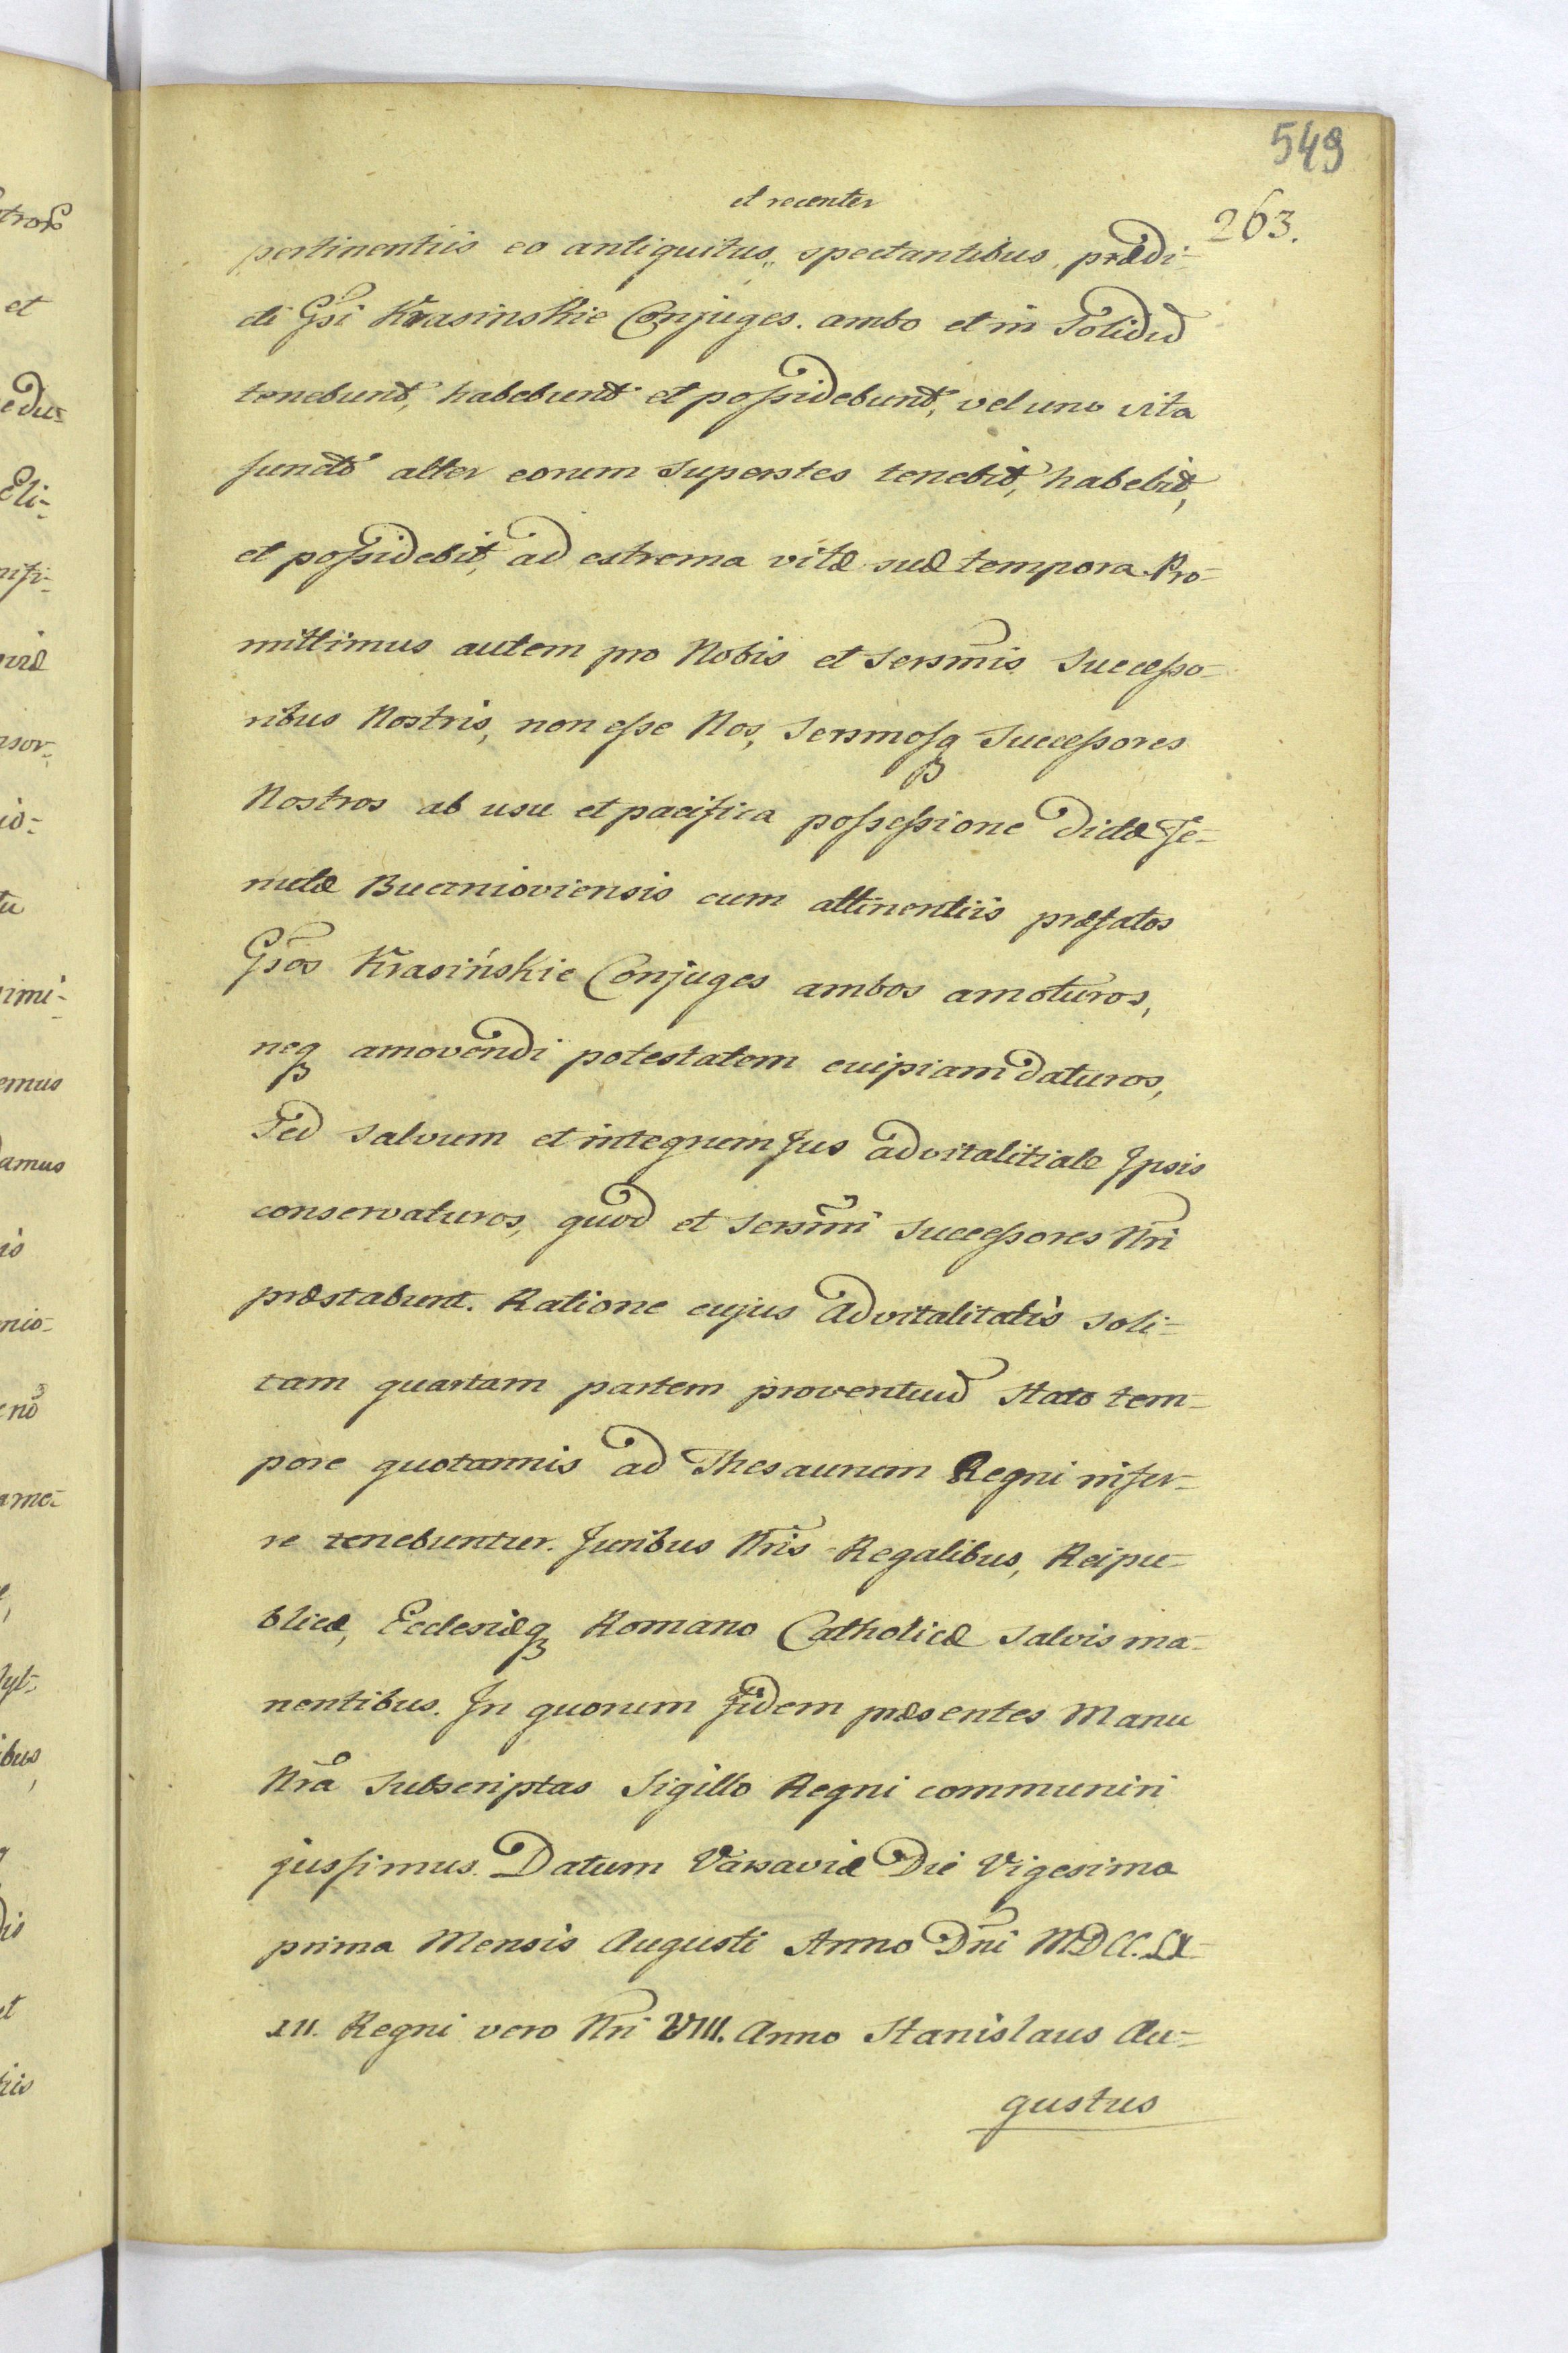 549
263.
et recenter
pertinentiis eo antiquitus„ spectantibus, prædi-
cti Gsi Krasinskie Conjuges. ambo et in Solidũ
tenebunt, habebunt et possidebunt, vel uno vita
functo alter eorum Superstes tenebit, habebit,
et possidebit, ad extrema vitæ suæ tempora. Pro-
mittimus autem pro Nobis et Sersmis Successo-
ribus Nostris, non esse Nos, Sersmosq Successores
Nostros ab usu et pacifica possessione dictæ Te-
nutæ Bucnioviensis cum attinentiis præfatos
Gsos Krasińskie Conjuges ambos amoturos,
neq amovendi potestatem cuipiam daturos,
Sed Salvum et integrum Jus advitalitiale Ipsis
conservaturos, quod et Sersmi Successores Nri
præstabunt. Ratione cujus Advitalitatis Soli-
tam quartam partem proventuũ Stato tem-
pore quotannis ad Thesaurum Regni infer-
re tenebuntur. Juribus Nris Regalibus, Reipu-
blicæ, Ecclesiæq Romano Catholicæ Salvis ma-
nentibus. In quorum fidem præsentes Manu
Nra Subscriptas Sigillo Regni communiri
jussimus. Datum Varsaviæ Die Vigesima
prima Mensis Augusti Anno Dni MDCC.LX-
XII. Regni vero Nri VIII. Anno Stanislaus Au-
gustus